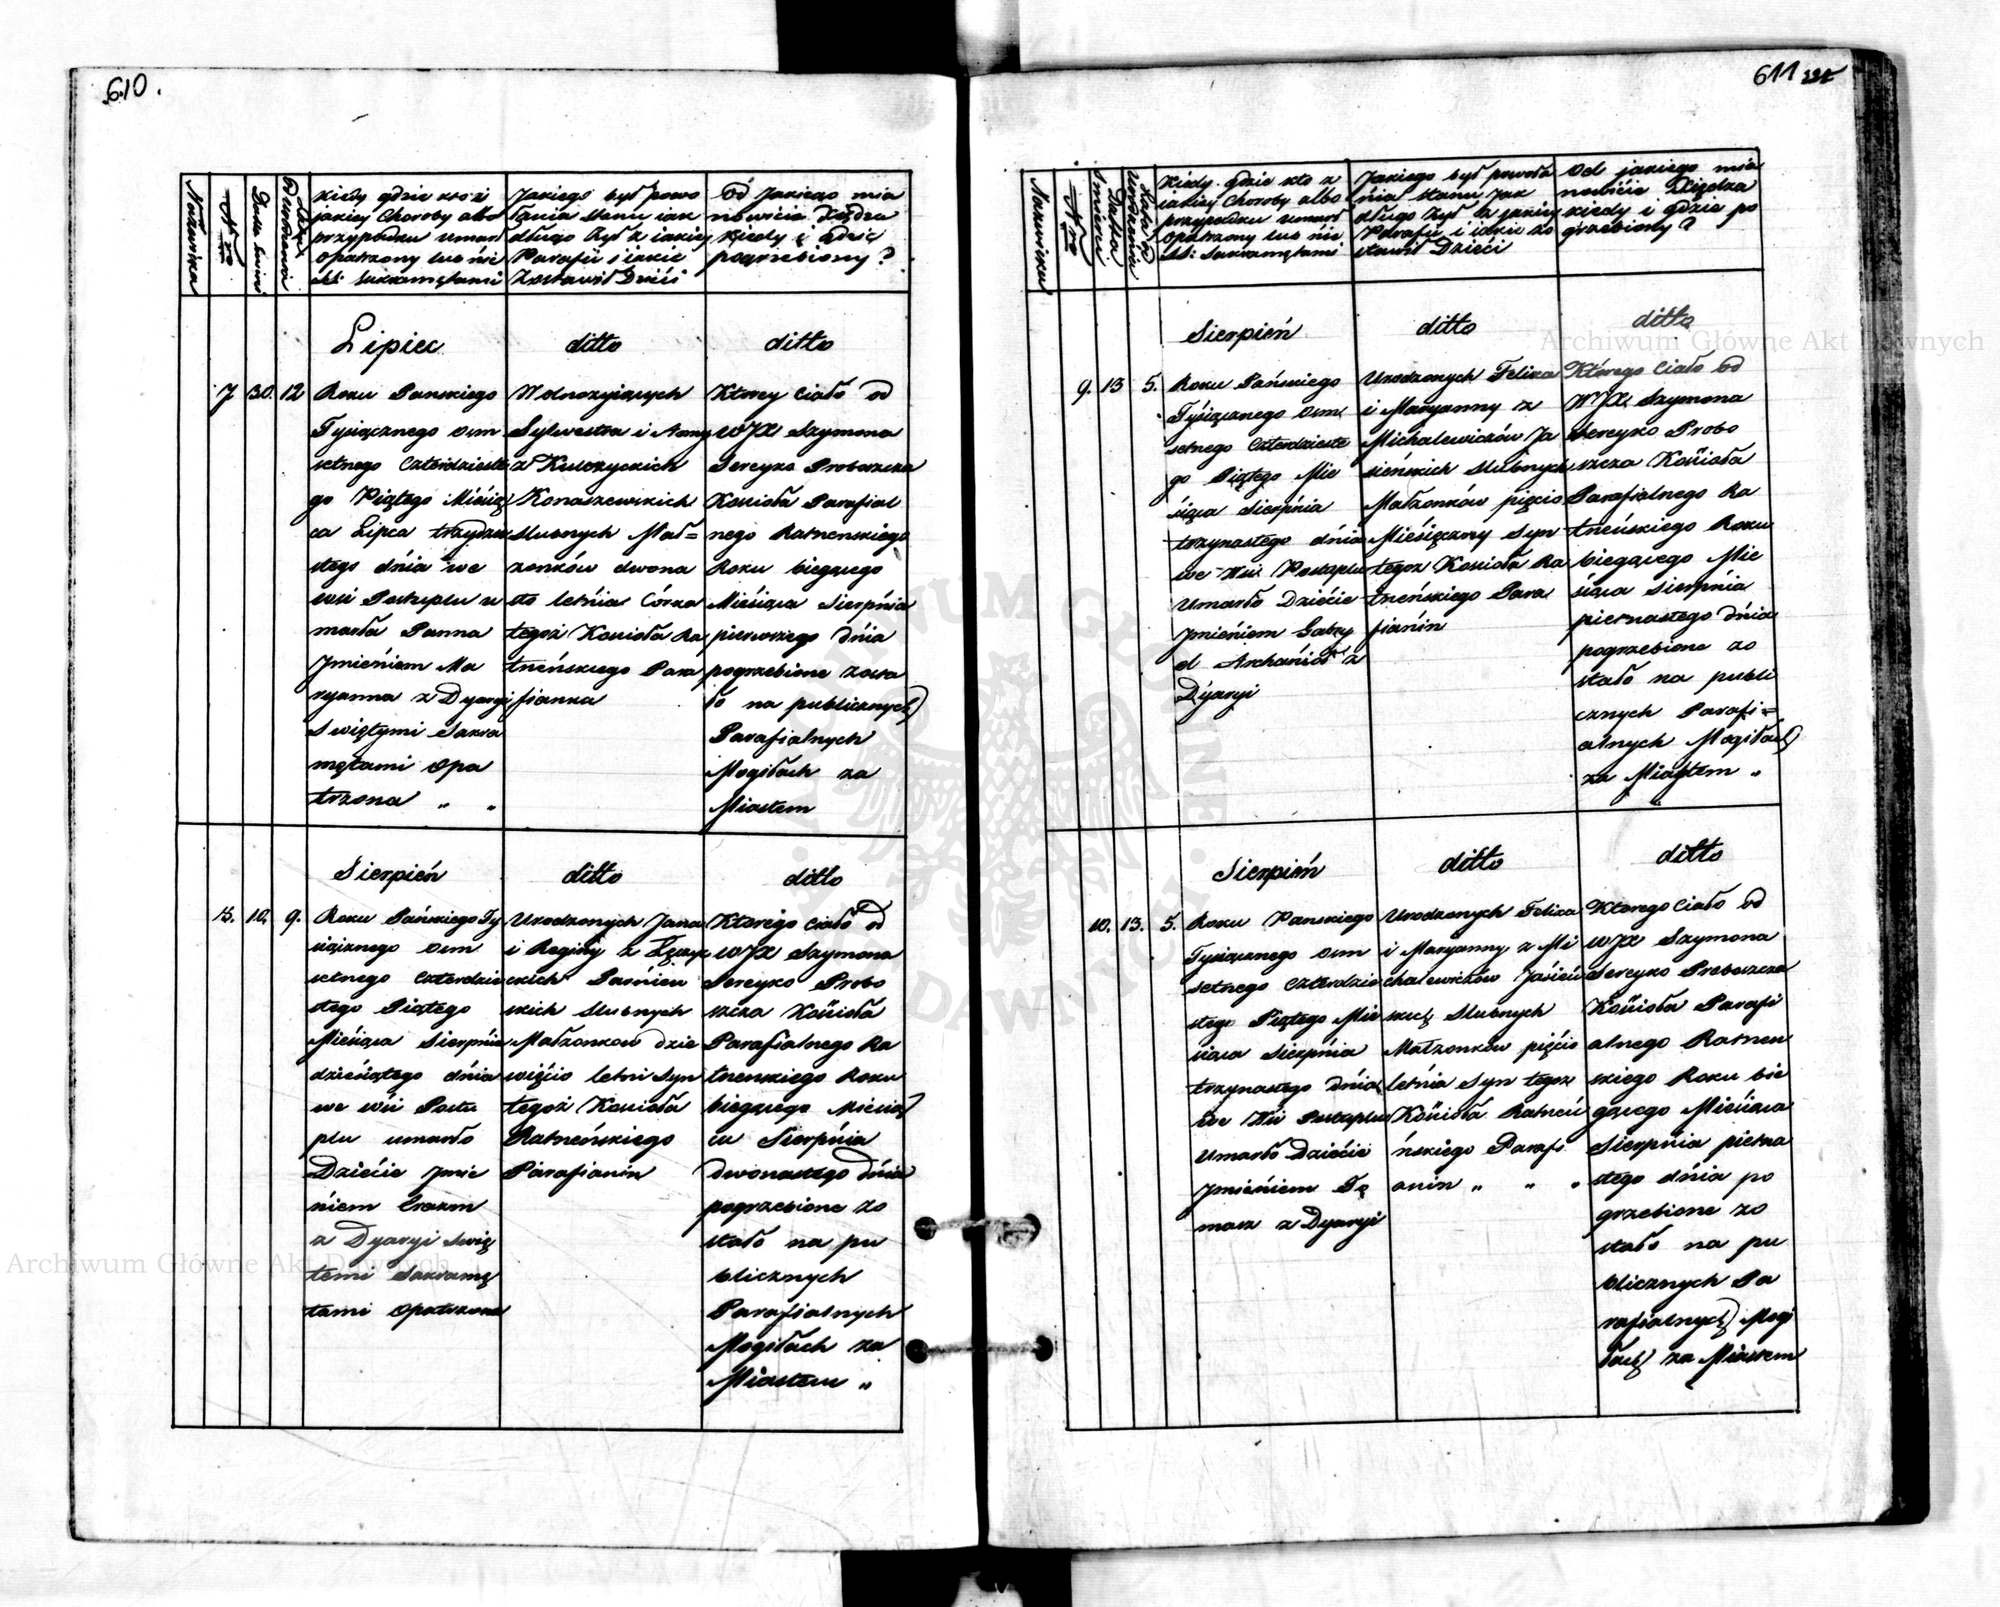 610.
Nazwiska
N-ro
Data śmierci
Lata od Urodzenia
Kiedy gdzie kto z
jakiey Choroby albo
przypadku umarł
Opatrzony lub nie
SS: Sakramętami
Jakiego był powo
łania stanu iak
długo żył z iakiey
Parafii i iakie
Zostawił Dzieci
Od Jakiego mia
nowicie Xiędza
Kiedy i gdzie
pogrzebiony?
Lipiec
ditto
ditto
7
30.
12
Roku Panskiego
Tysiącznego osm
setnego Czterdzieste
go Piątego Miesią
ca Lipca trzydzie
stego dnia we
wsi Postuplu u
marła Panna
Jmieniem Ma
ryanna z Dyaryi
Swiętymi Sakra
mętami Opa
trzona „ „
Wolnozyiących
Sylwestra i Anny
z Kulczyckich
Konaszewskich
slubnych Mał=
zonków dwona
sto letnia Córka
tegoż Kosioła Ra
tneńskiego Para
fianka
Ktorey Ciało od
WJX Szymona
Sereyko Proboszcza
Kosioła Parafial
nego Ratnenskiego
Roku biegącego
Miesiąca Sierpnia
pierwszego dnia
pogrzebione zosta
ło na publicznych
Parafialnych
Mogiłach za
Miastem
Sierpień
ditto
ditto
10.
9.
Roku Pańskiego Ty
siącznego osm
setnego Czterdzie
stego Piątego
Miesiąca Sierpnia
dziesiątego dnia
we wsi Postu
plu umarło
Dziecie Jmie
niem Erazm
z Dyaryi Swię
temi Sakramę
tami Opatrzone
Urodzonych Jana
i Reginy z
ckich
skich Slubnych
Małzonkow dzie
więcio letni Syn
tegoż Kosioła
Ratneńskiego
Parafianin
Ktorego Ciało od
WJX Szymona
Sereyko Probo
szcza Kosioła
Parafialnego Ra
tnenskiego Roku
biegącego Miesią
ca Sierpnia
dwonastego dnia
pogrzebione zo
stało na pu
blicznych
Parafialnych
Mogiłach za
Miastem „
611
Nazwiska
N-ro
Datta Smierci
Lata od Urodzenia
Kiedy gdzie kto z
iakiey Choroby albo
przypadku umarł
opatrzony lub nie
SS: Sakramętami
Jakiego był powoła
nia stanu Jak
długo żył z jakiey
Parafii i iakie zo
stawił Dzieci
Od jakiego mia
nowicie Xiędza
kiedy i gdzie po
grzebiony?
Sierpień
ditto
ditto
9.
13
5.
Roku Pańskiego
Tysiącznego osm
setnego Czterdzieste
go Piątego Mie
siąca Sierpnia
trzynastego dnia
we Wsi Postuplu
Umarło Dziecie
Jmieniem Gabry
el Archanioł z
Dyaryi
Urodzonych Felixa
i Maryanny z
Michalewiczów Ja
sieńskich slubnych
Małzonków pięcio
Miesięczny Syn
tegoż Kosioła Ra
tneńskiego Para
fianin
Którego Ciało od
WJX. Szymona
Sereyko Probo
szcza Kosioła
Parafialnego Ra
tneńskiego Roku
biegącego Mie
siąca Sierpnia
pietnastego dnia
pogrzebione zo
stało na publi
cznych Parafi=
alnych Mogiłach
za Miastem „
Sierpień
ditto
ditto
10.
13.
5.
Roku Panskiego
Tysiącznego osm
setnego Czterdzie
stego Piątego Mie
siąca Sierpnia
trzynastego dnia
we Wsi Postuplu
Umarło Dziecie
Jmieniem To
masz z Dyaryi
Urodzonych Felixa
i Maryanny z Mi
chalewiczów Jasień
skich Slubnych
Małzonków pięcio
letnia Syn tegoż
Kosioła Ratneń
ńskiego Parafi
anin „ „ „
Ktorego Ciało od
WJX Szymona
Sereyko Proboszcza
Kosioła Parafi
alnego Ratnen
skiego Roku bie
gącego Miesiąca
Sierpnia pietna
stego dnia po
grzebione zo
stało na pu
blicznych Pa
rafialnych Mogi
łach za Miastem
Archiwum Główne Akt Dawnych
Archiwum Główne Akt Dawnych